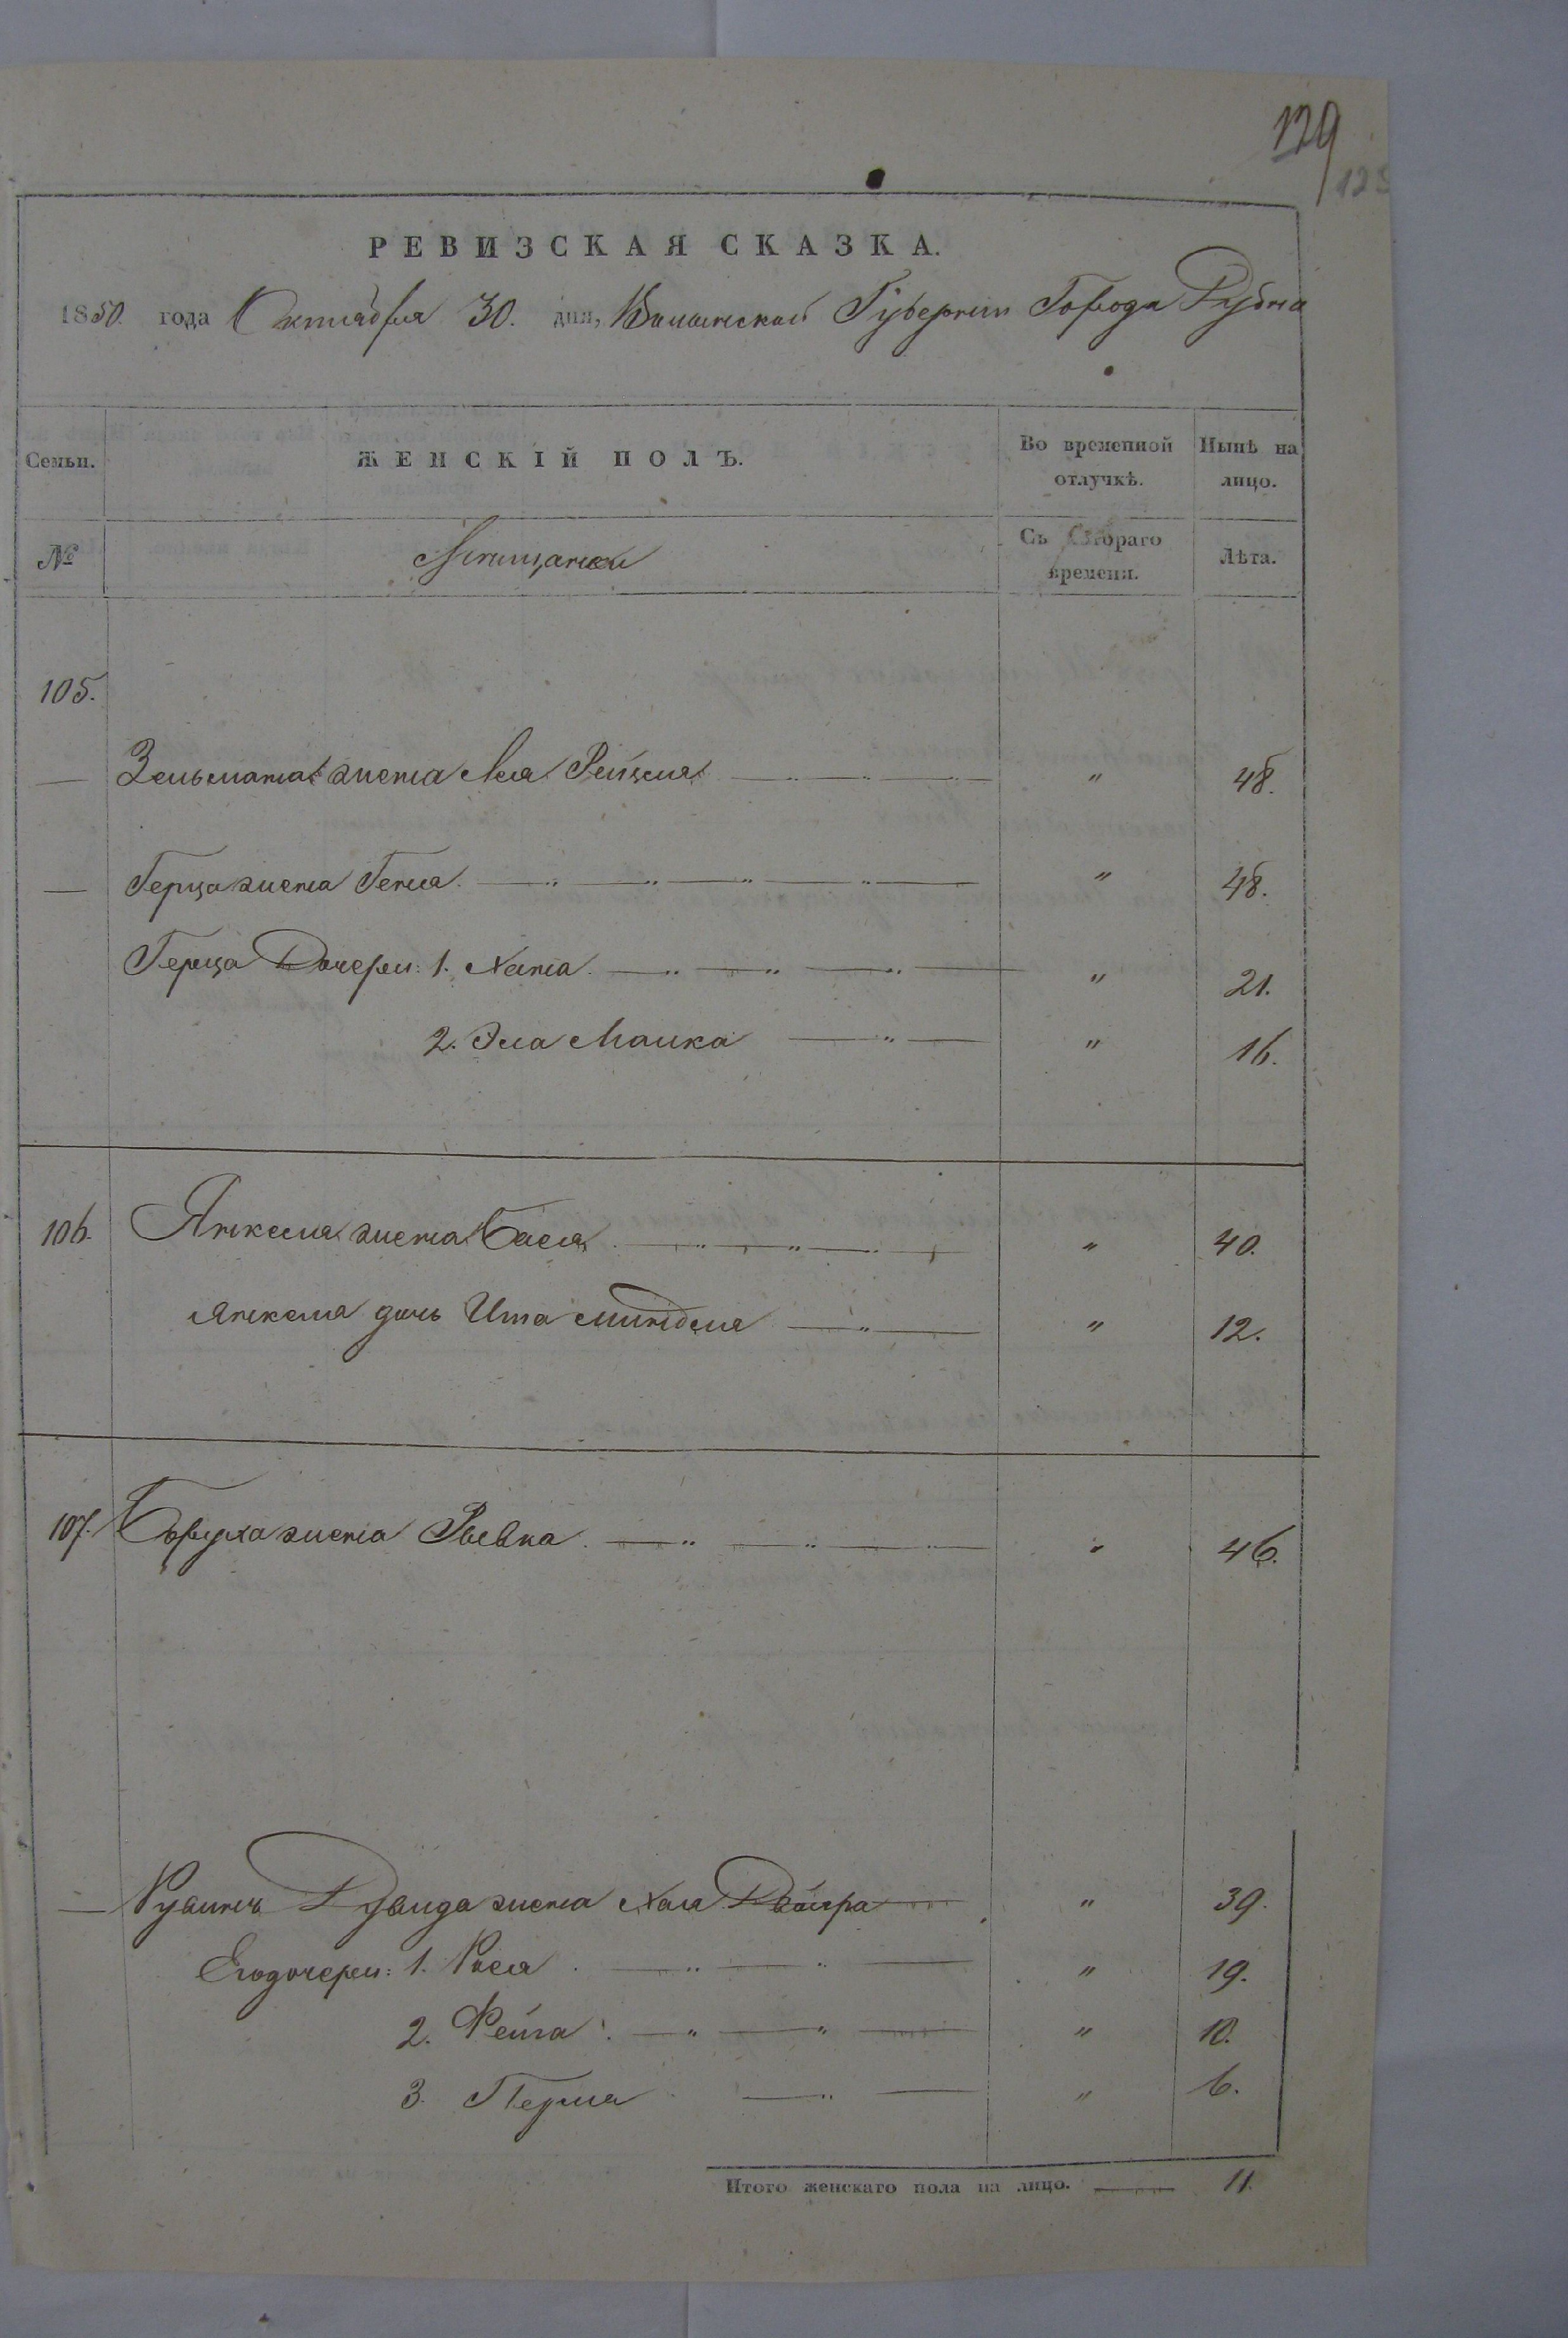 129
125
РЕВИЗСКАЯ СКАЗКА.
1850 года Октября 30. дня, Волынской Губернии Города Дубна
Семьи. ЖЕНСКІЙ ПОЛЪ. Во временной отлучкѣ. Нынѣ на лицо.
№ Мѣщанки Съ котораго времени. Лѣта.
105.
— Зельмана жена Лея Рейзля — " — " — " 48.
— Герца жена Геня. — " — " — " — " — " 48.
Герца Дочери: 1. Хана. — " — " — " — " 21.
2. Эла Малка — " — " 16.
106. Янкеля жена Бася. — " — " — " — " 40.
Янкеля дочь Ита Миндля — " — " 12.
107. Боруха жена Рывка. — " — " — " — " 46.
— Рувинъ Дувида жена Хая Двойра — " 39.
Его дочери: 1. Рыся. — " — " — " 19.
2. Фейга. — " — " — " 10.
3. Перля — " — " 6.
Итого женскаго пола на лицо. — 11.